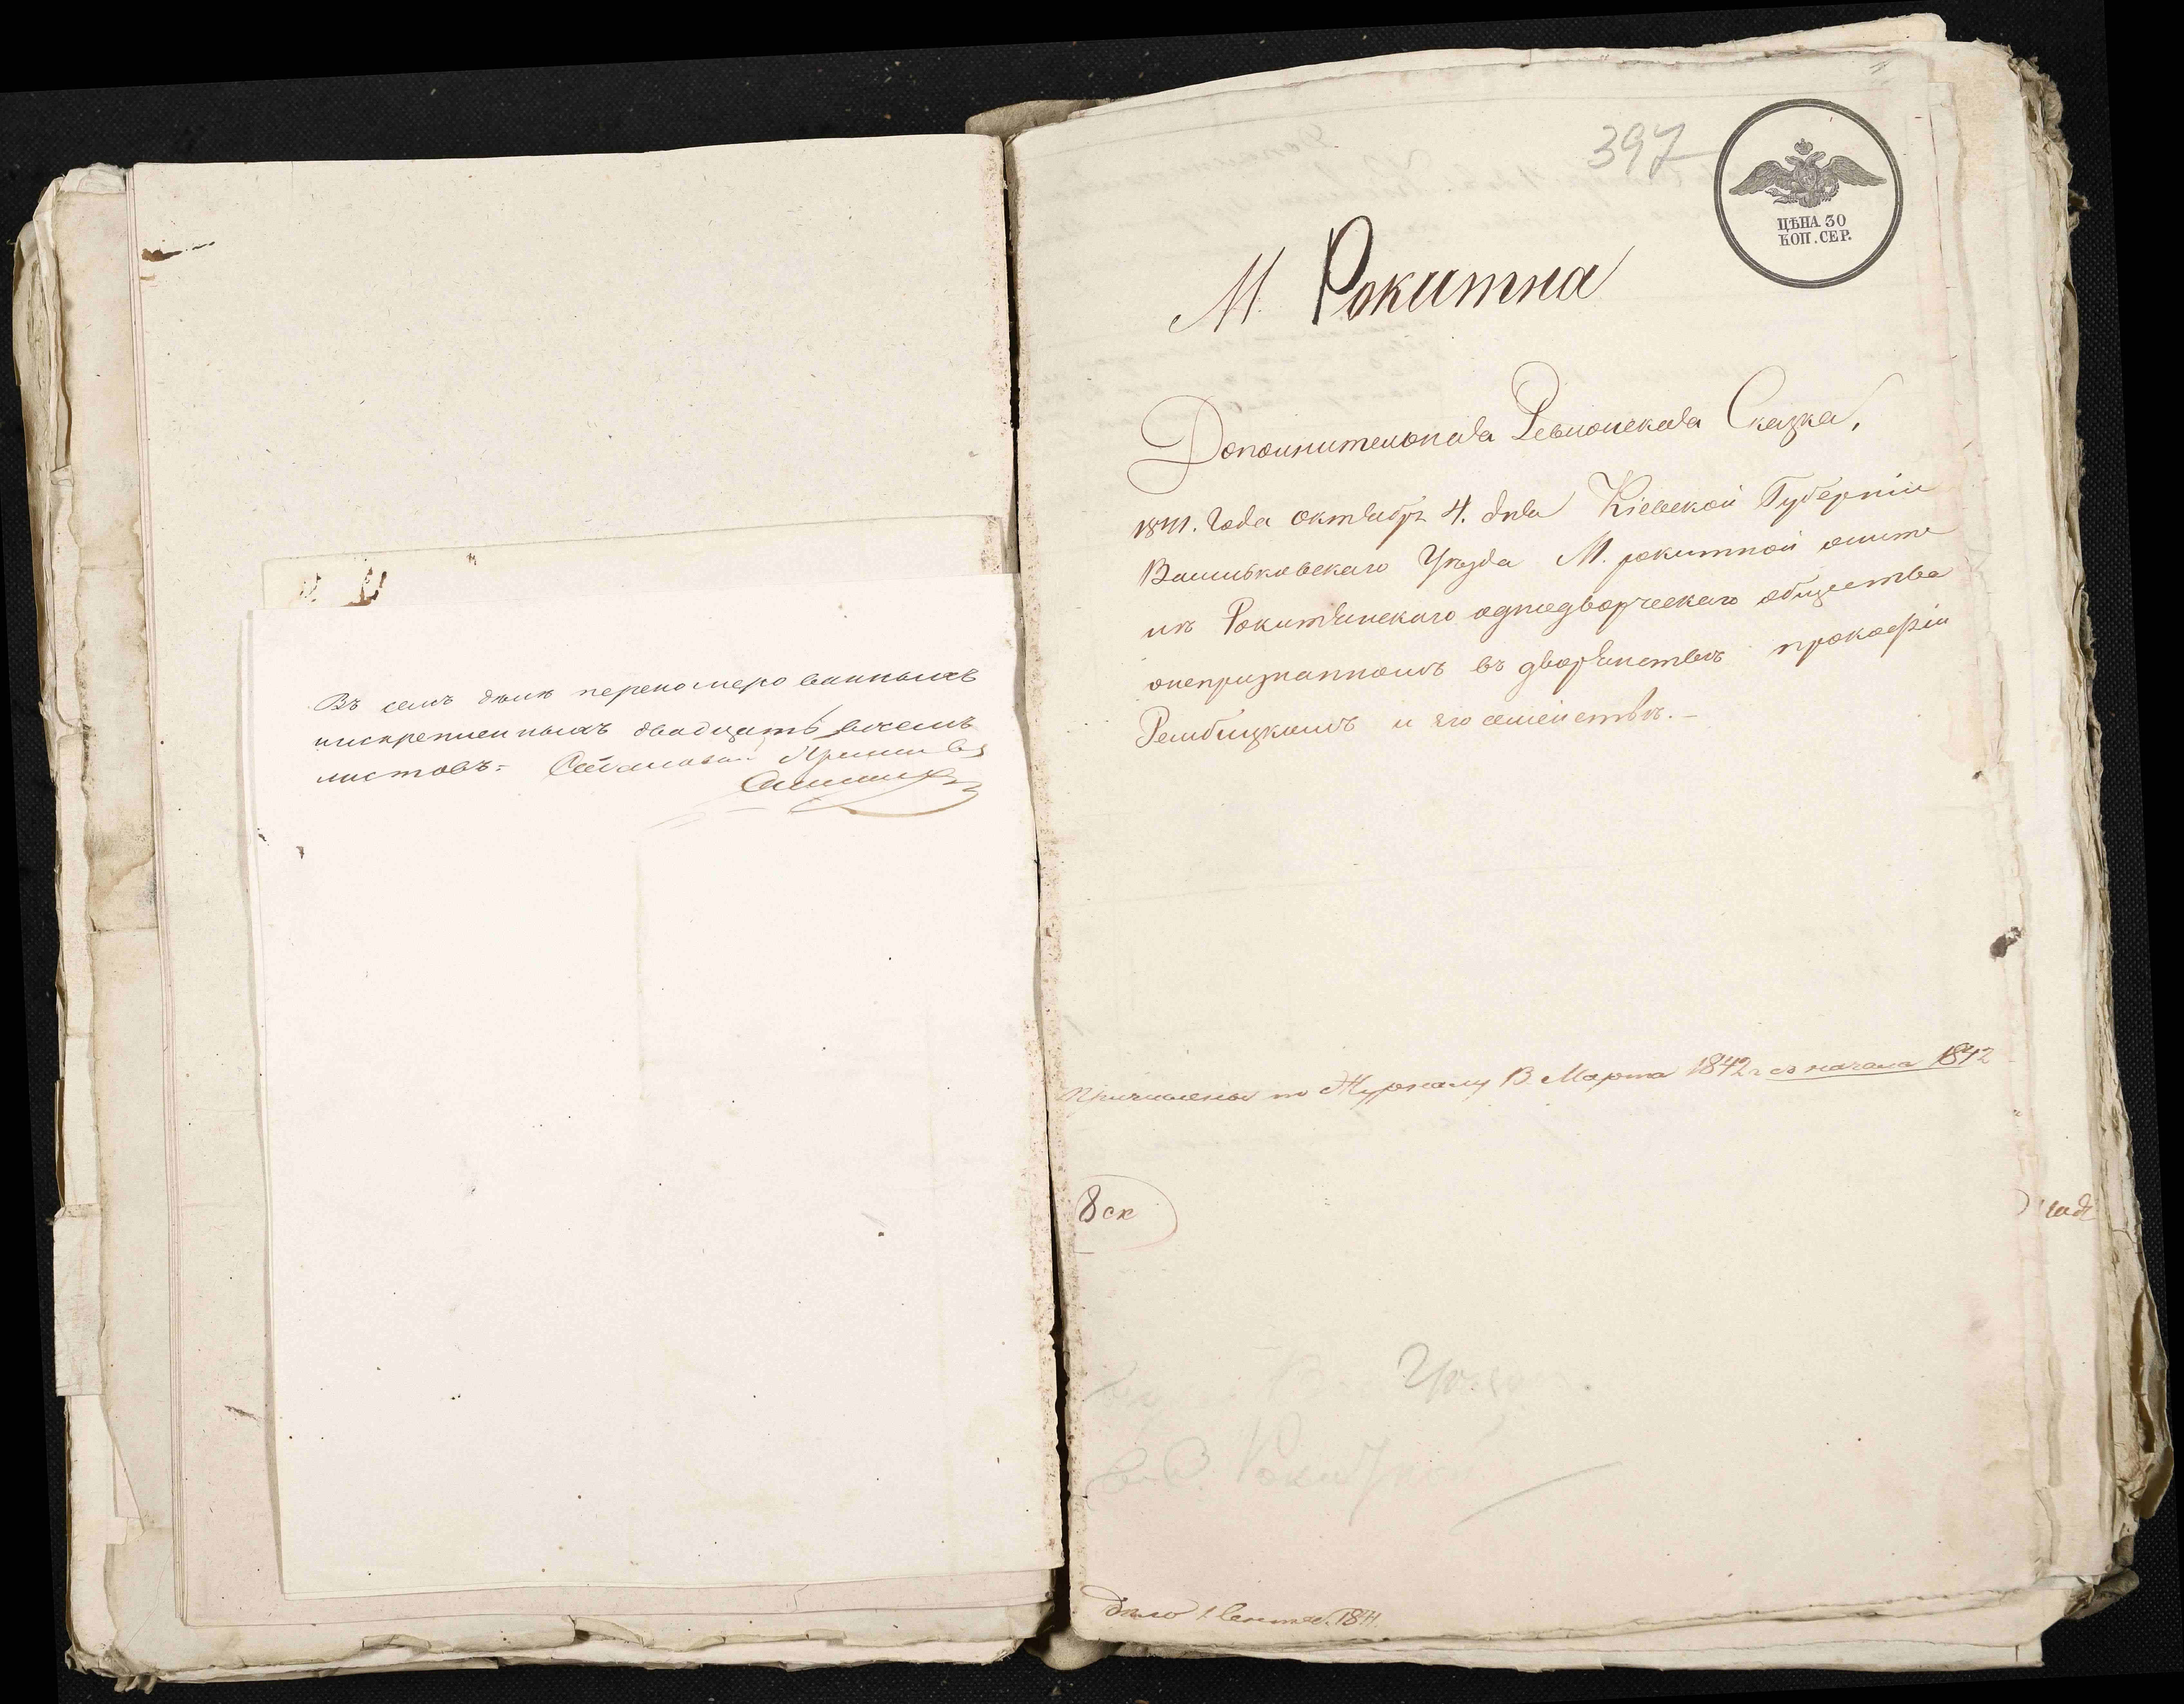 Въ семъ дѣлѣ переномерованныхъ
искрепленныхъ двадцать восемь
листовъ= Становой Приставъ
397
ЦѢНА 30
КОП. СЕР.
М. Рокитна
Дополнительная Ревизская Сказка,
1841. Года октября 4. дня Кіевской Губерніи
Васильковского Уѣзда М. рокитной
Рокитянского однодворческаго общества
онепризнанномъ въ дворянствѣ прокофіи
Рембицкомъ и его семействѣ.-
Причислены по Журналу В. Марта 1842 г съ начала 1842
8 ск
дѣло 1. Сентяб. 1841.